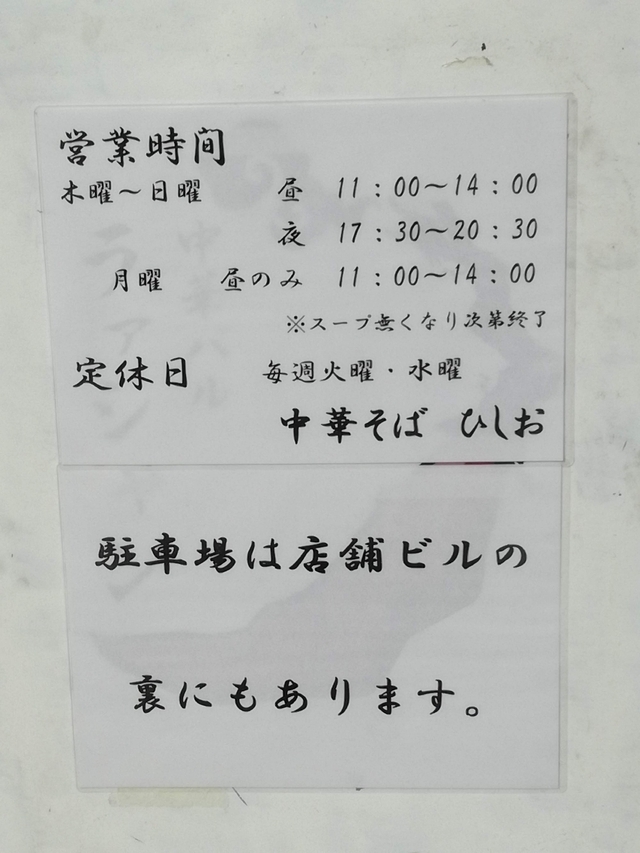 営業時間
木曜～日曜 昼 11：00～14：00
夜 17：30～20：30
月曜 昼のみ 11：00～14：00
※スープ無くなり次第終了
定休日 毎週火曜・水曜
中華そば ひしお
駐車場は店舗ビルの
裏にもあります。